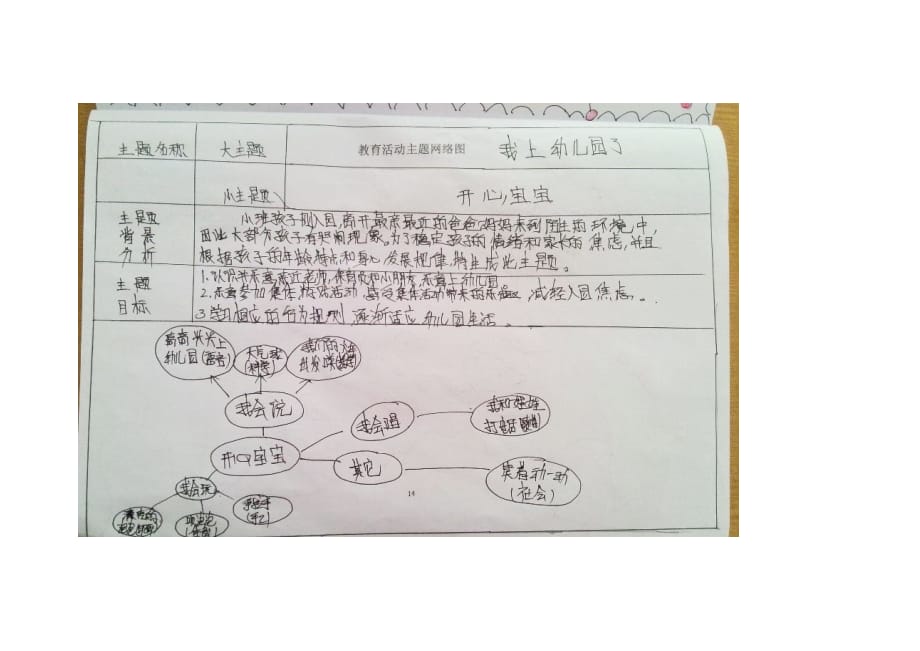 主题名称 大主题 教育活动主题网络图 我上幼儿园了
小主题 开心宝宝
主题 小班孩子刚入园,离开最亲最近的爸爸妈妈来到陌生的环境中,
背景 因此大部分孩子有哭闹现象。为了稳定孩子的情绪和家长的焦虑,并且
分析 根据孩子的年龄特点和身心发展规律,特生成此主题。
主题 1.认识并乐意亲近老师,保育员和小朋友,乐意上幼儿园
2.乐意参加集体游戏活动,感受集体活动带来的乐趣,减轻入园焦虑。
目标 3.学习相应的行为规则,逐渐适应幼儿园生活。
高高兴兴上
幼儿园(语言)
大气球
(科学)
我会说
我会唱
打电话
开心宝宝
其它
笑着动一动
(社会)
我会玩
14